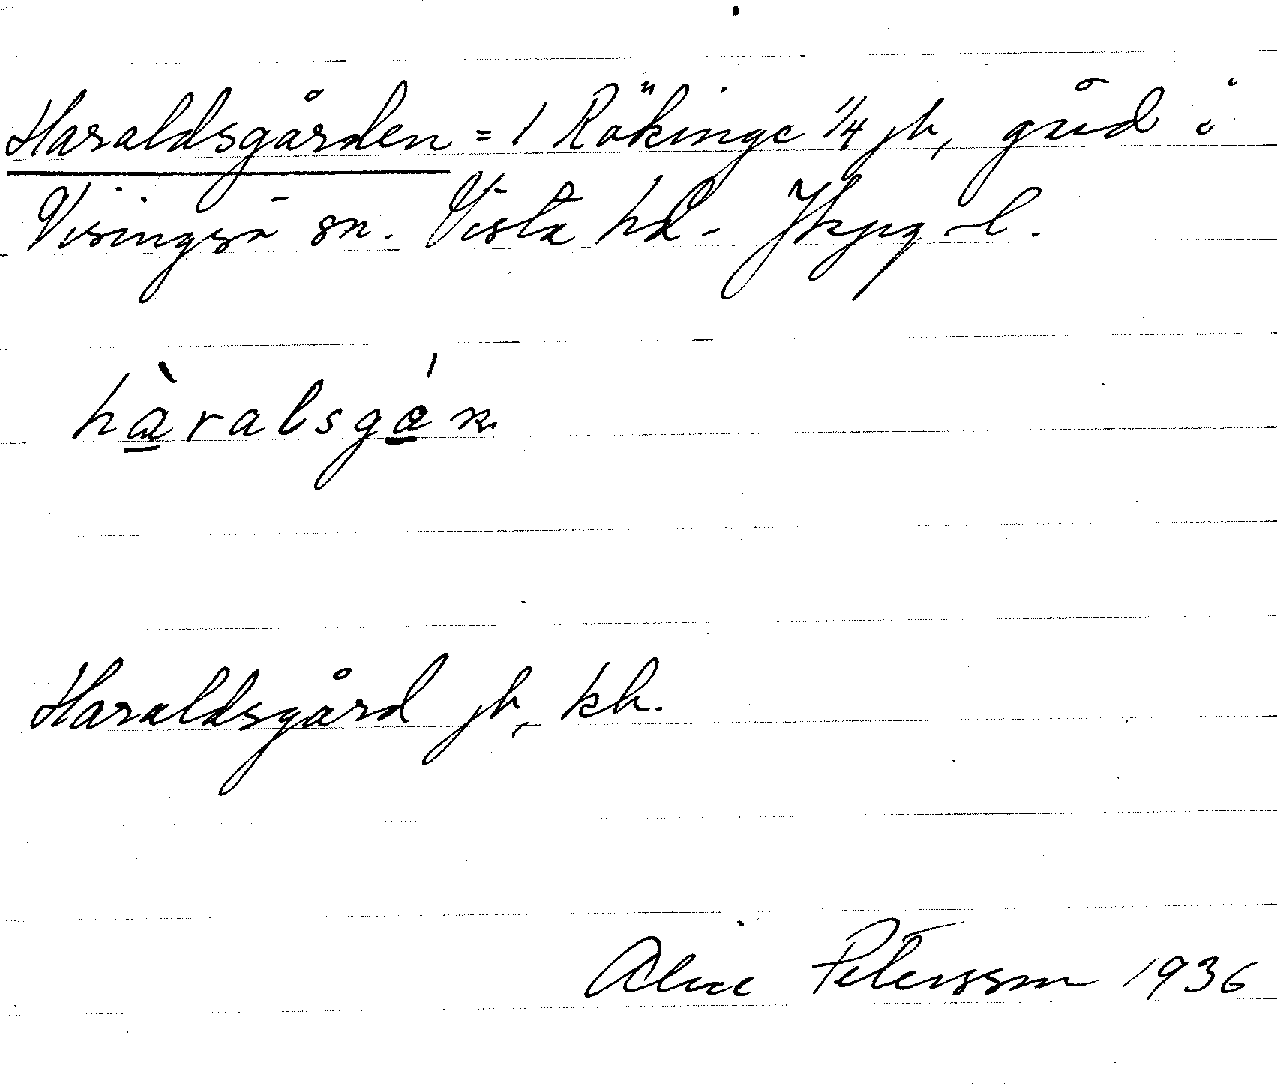 Haraldsgården = 1 Rökinge 1/4 jb, gård i
Visingsö sn. Vista hd. Jkpg l.
hàralsgán
Haraldsgård jb, kb.
Alice Petersson 1936